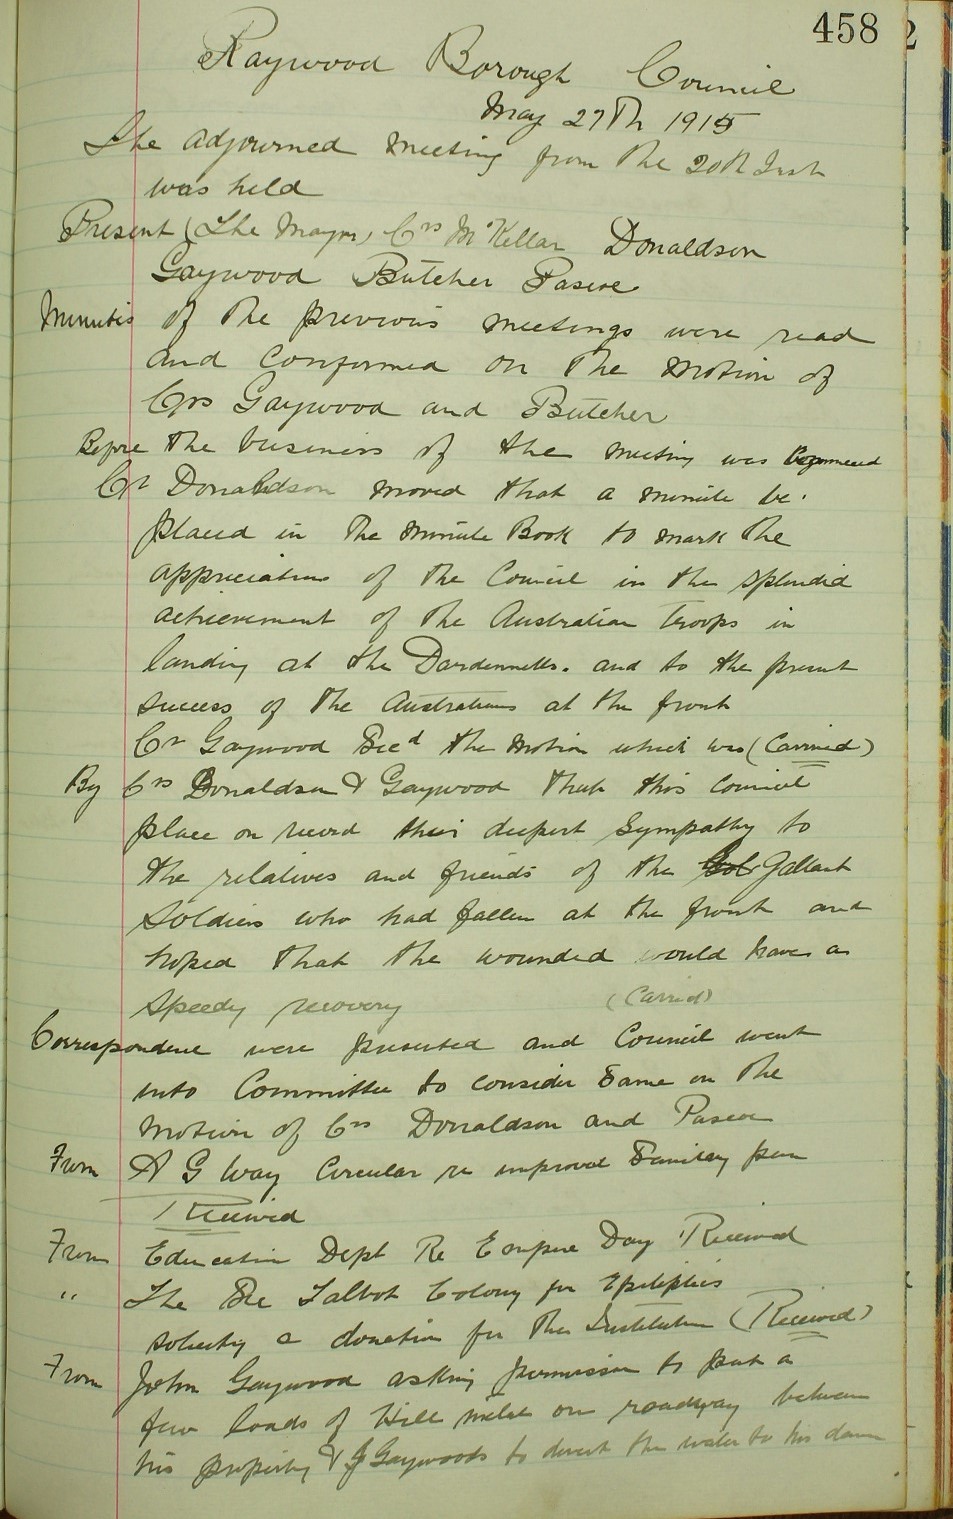 458
Raywood Borough Council
May 27th 1915
The adjourned meeting from the 20th Inst
was held
Present (The Mayor) Crs McKellar Donaldson
Gaywood Butcher Pascoe
Minutes of the previous meetings were read
and confirmed on the motion of
Crs Gaywood and Butcher
Before the business of the meeting was commenced
Cr Donaldson moved that a minute be
placed in the Minute Book to mark the
appreciation of the Council in the splendid
achievement of the Australian troops in
landing at the Dardennells. and to the present
success of the Australians at the front
Cr Gaywood Secd the motion which was (Carried)
By Crs Donaldson & Gaywood That this Council
place on record their deepest sympathy to
the relatives and friends of the Gallant
Soldiers who had fallen at the front and
hoped that the wounded would have a
speedy recovery (Carried)
Correspondence were presented and Council went
into Committee to consider same on the
motion of Crs Donaldson and Pascoe
From A G Way Circular re improved Sanitary pan
Received
From Education Dept Re Empire Day Received
" The Sec Talbot Colony for Epileptics
soliciting a donation for the Institution (Received)
From John Gaywood asking permission to put a
few loads of Hill metal on roadway between
his property & J Gaywoods to divert the water to his dam